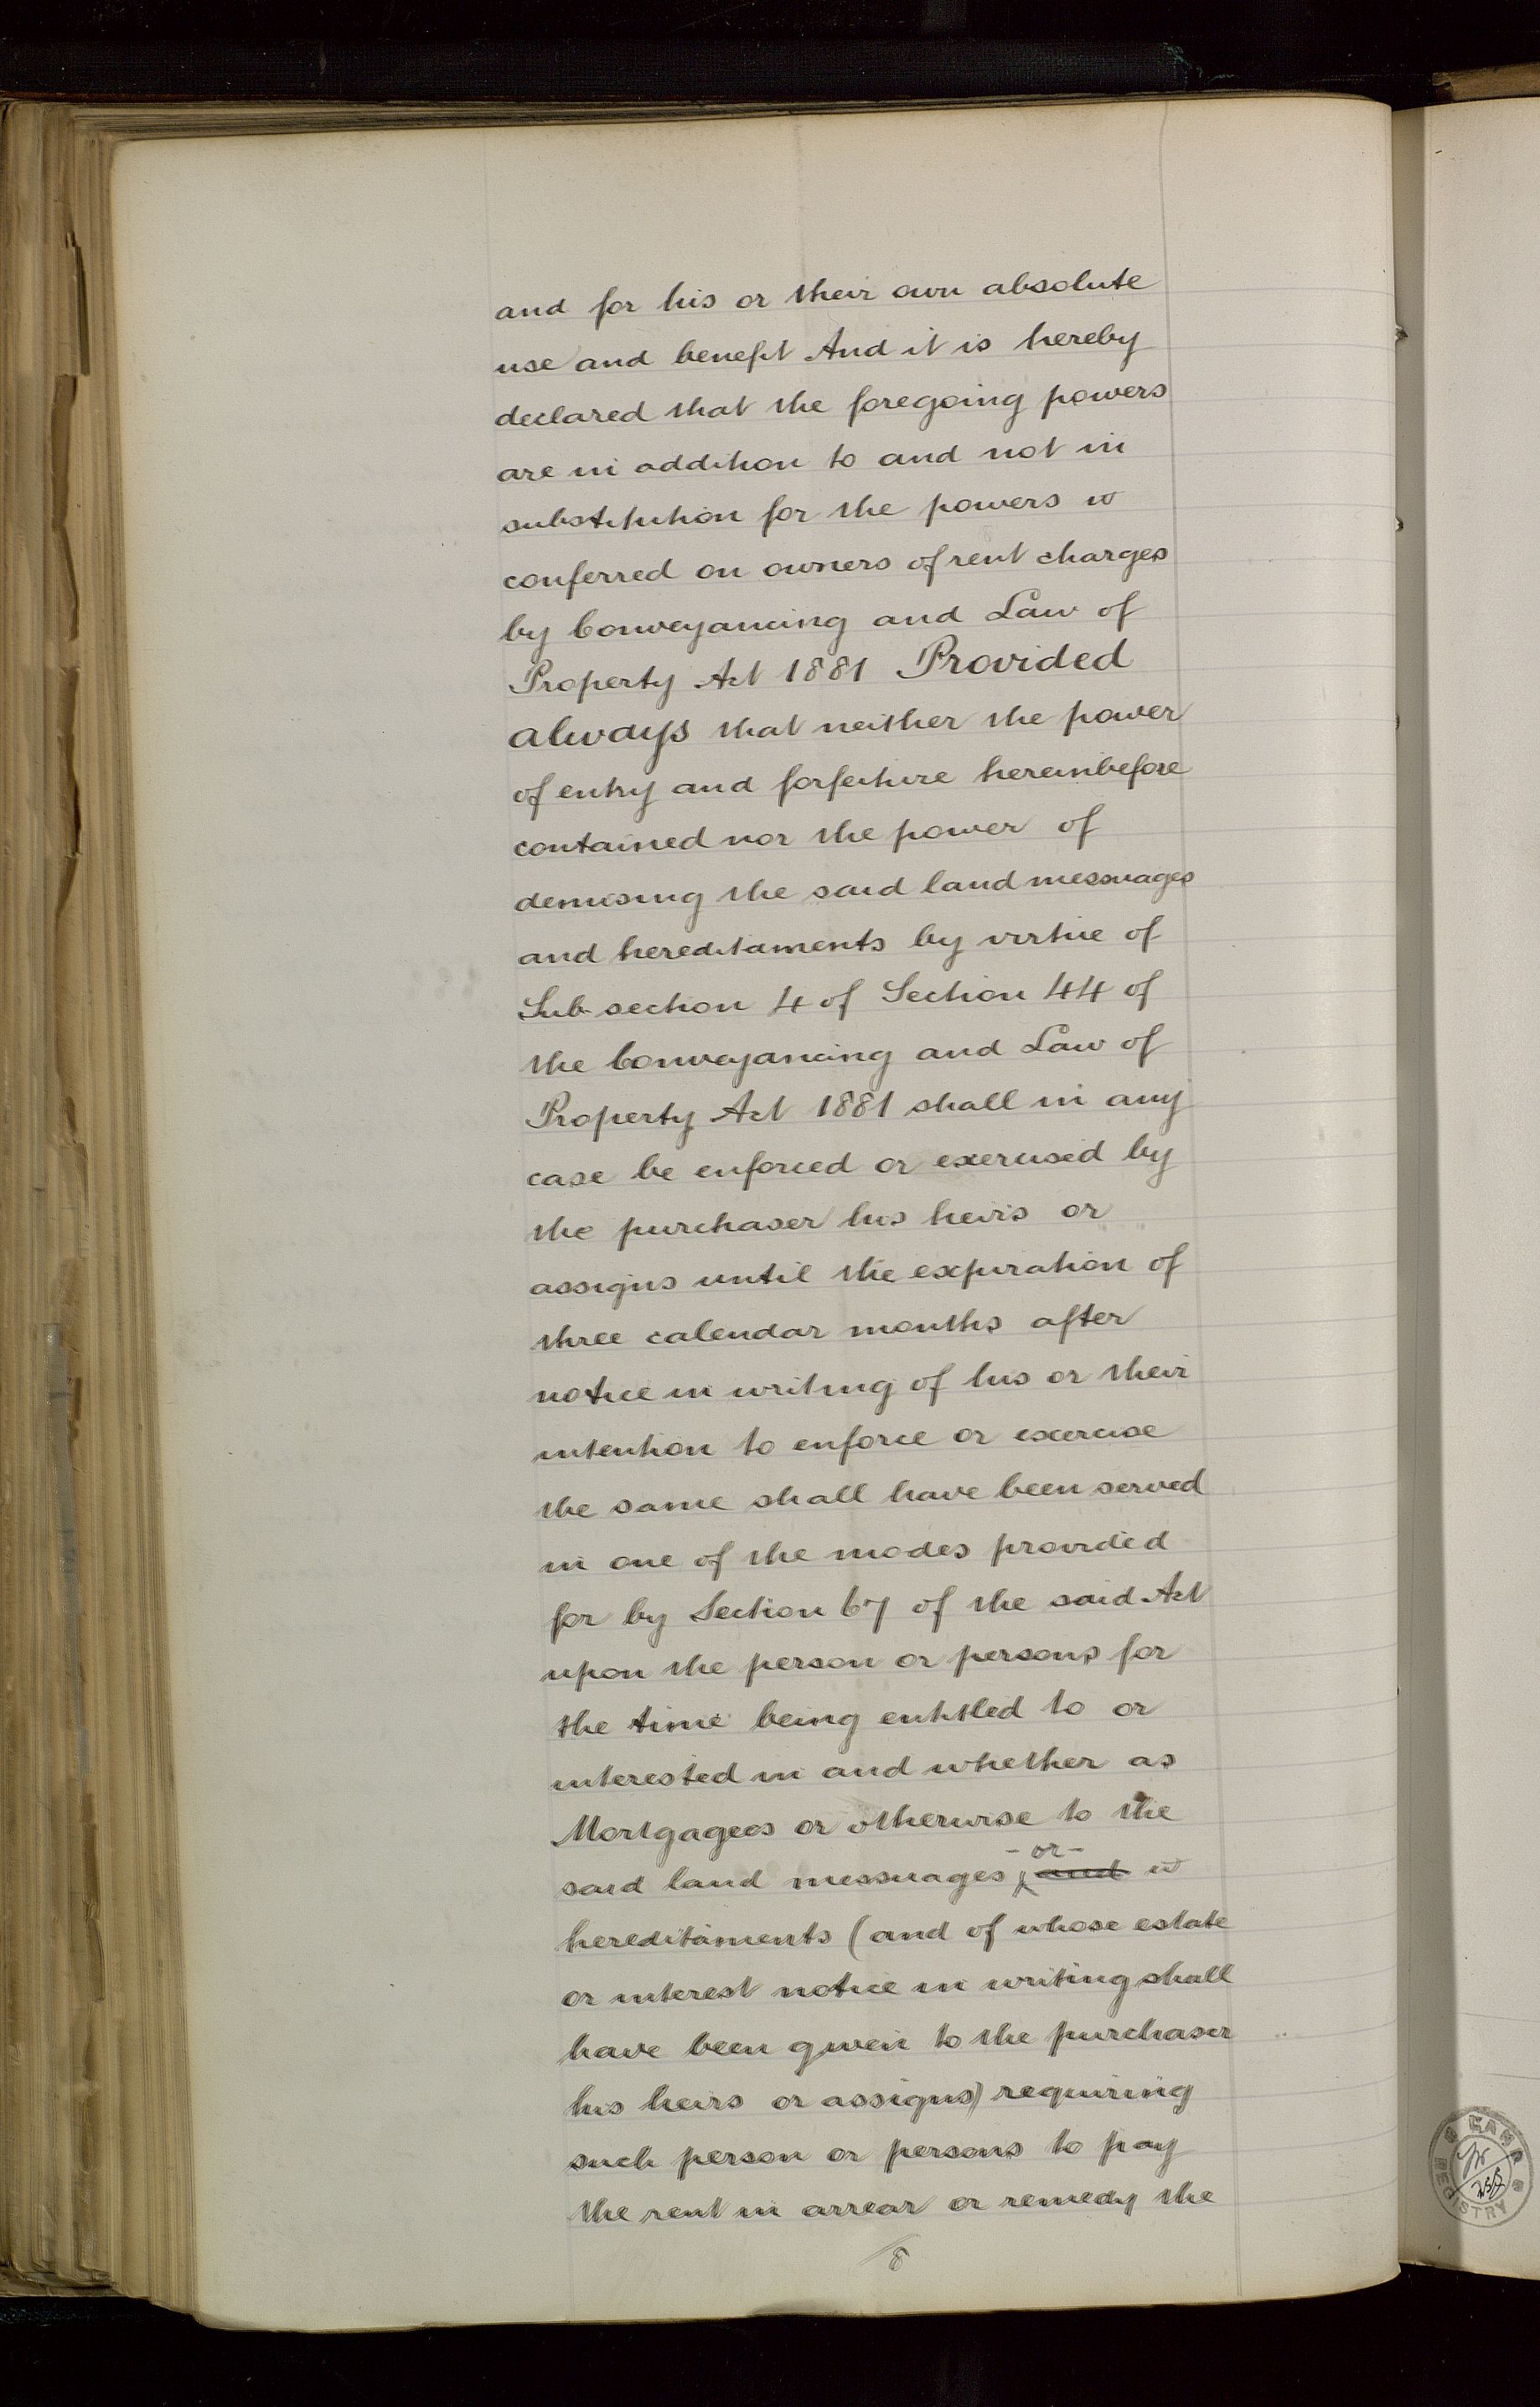 and for his or their own absolute
use and benefit And it is hereby
declared that the foregoing powers
are in addition to and not in
substitution for the powers
conferred on owners of rent charges
by Conveyancing and Law of
Property Act 1881 Provided
always that neither the power
of entry and forfeiture hereinbefore
contained nor the power of
demising the said land messuages
and hereditaments by virtue of
Sub-section 4 of Section 44 of
the Conveyancing and Law of
Property Act 1881 shall in any
case be enforced or exercised by
the purchaser his heirs or
assigns until the expiration of
three calendar months after
notice in writing of his or their
intention to enforce or exercise
the same shall have been served
in one of the modes provided
for by Section 67 of the said Act
upon the person or persons for
the time being entitled to or
interested in and whether as
Mortgagees or otherwise to the
- or -
said land messuages and
hereditaments (and of whose estate
or interest notice in writing shall
have been given to the purchaser
his heirs or assigns) requiring
such person or persons to pay
the rent in arrear or remedy the
8
LAND
REGISTRY